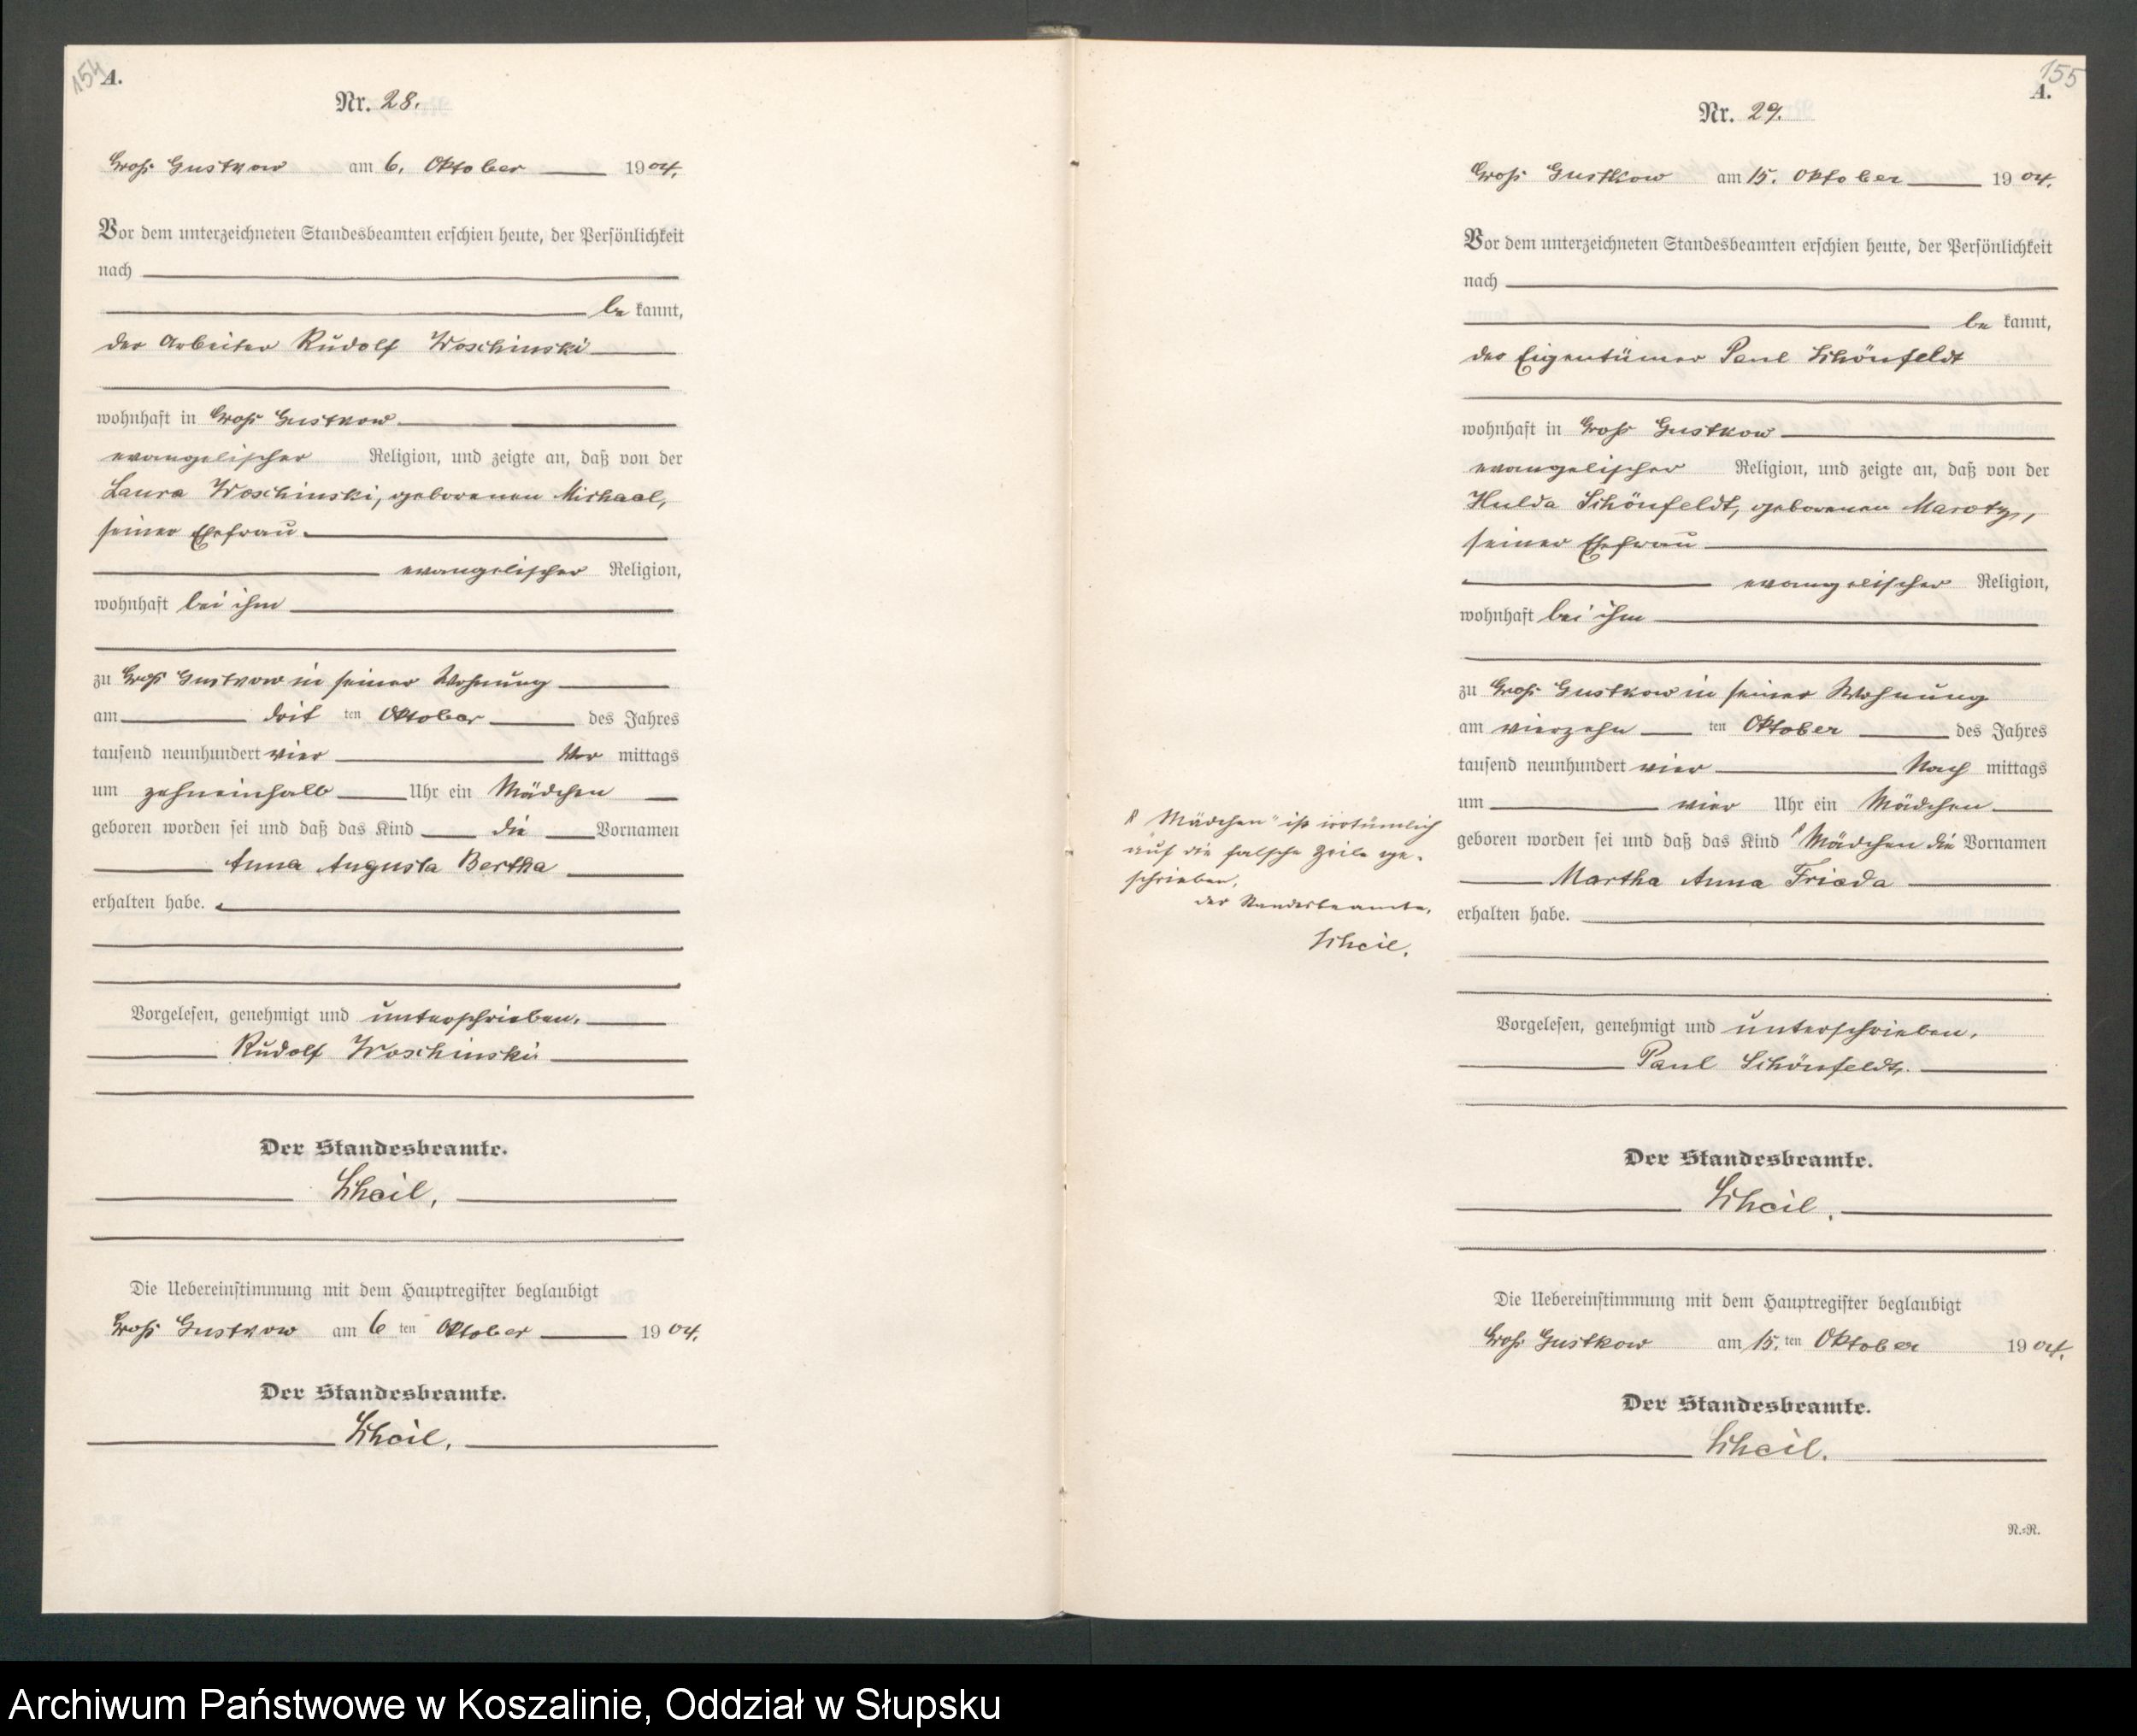 154
A.
Nr. 28.
Groß Gustkow am 6. Oktober 1904.
Vor dem unterzeichneten Standesbeamten erschien heute, der Persönlichkeit
nach
be kannt,
der Arbeiter Rudolf Woschinski
wohnhaft in Groß Gustkow
evangelischer Religion, und zeigte an, daß von der
Laura Woschinski, geborenen Michaal,
seiner Ehefrau
evangelischer Religion,
wohnhaft bei ihm
zu Groß Gustkow in seiner Wohnung
am drit ten Oktober des Jahres
tausend neunhundert vier Vor mittags
um zehneinhalb Uhr ein Mädchen
geboren worden sei und daß das Kind die Vornamen
Anna Augusta Bertha
erhalten habe.
Vorgelesen, genehmigt und unterschrieben.
Rudolf Woschinski
Der Standesbeamte.
Scheil.
Die Uebereinstimmung mit dem Hauptregister beglaubigt
Groß Gustkow am 6 ten Oktober 1904.
Der Standesbeamte.
Scheil.
155
A.
Nr. 29.
Groß Gustkow am 15. Oktober 1904.
Vor dem unterzeichneten Standesbeamten erschien heute, der Persönlichkeit
nach
be kannt,
der Eigentümer Paul Schönfeldt
wohnhaft in Groß Gustkow
evangelischer Religion, und zeigte an, daß von der
Hulda Schönfeldt, geborenen Marotz,
seiner Ehefrau
evangelischer Religion,
wohnhaft bei ihm
zu Groß Gustkow in seiner Wohnung
am vierzehn ten Oktober des Jahres
tausend neunhundert vier Nach mittags
um vier Uhr ein Mädchen
geboren worden sei und daß das Kind Mädchen die Vornamen
Martha Anna Frieda
erhalten habe.
Mädchen" ist irrtümlich
auf die falsche Zeile ge-
schrieben.
der Standesbeamte.
Scheil.
Vorgelesen, genehmigt und unterschrieben.
Paul Schönfeldt.
Der Standesbeamte.
Scheil.
Die Uebereinstimmung mit dem Hauptregister beglaubigt
Groß Gustkow am 15. ten Oktober 1904.
Der Standesbeamte.
Scheil.
N.=R.
Archiwum Państwowe w Koszalinie, Oddział w Słupsku